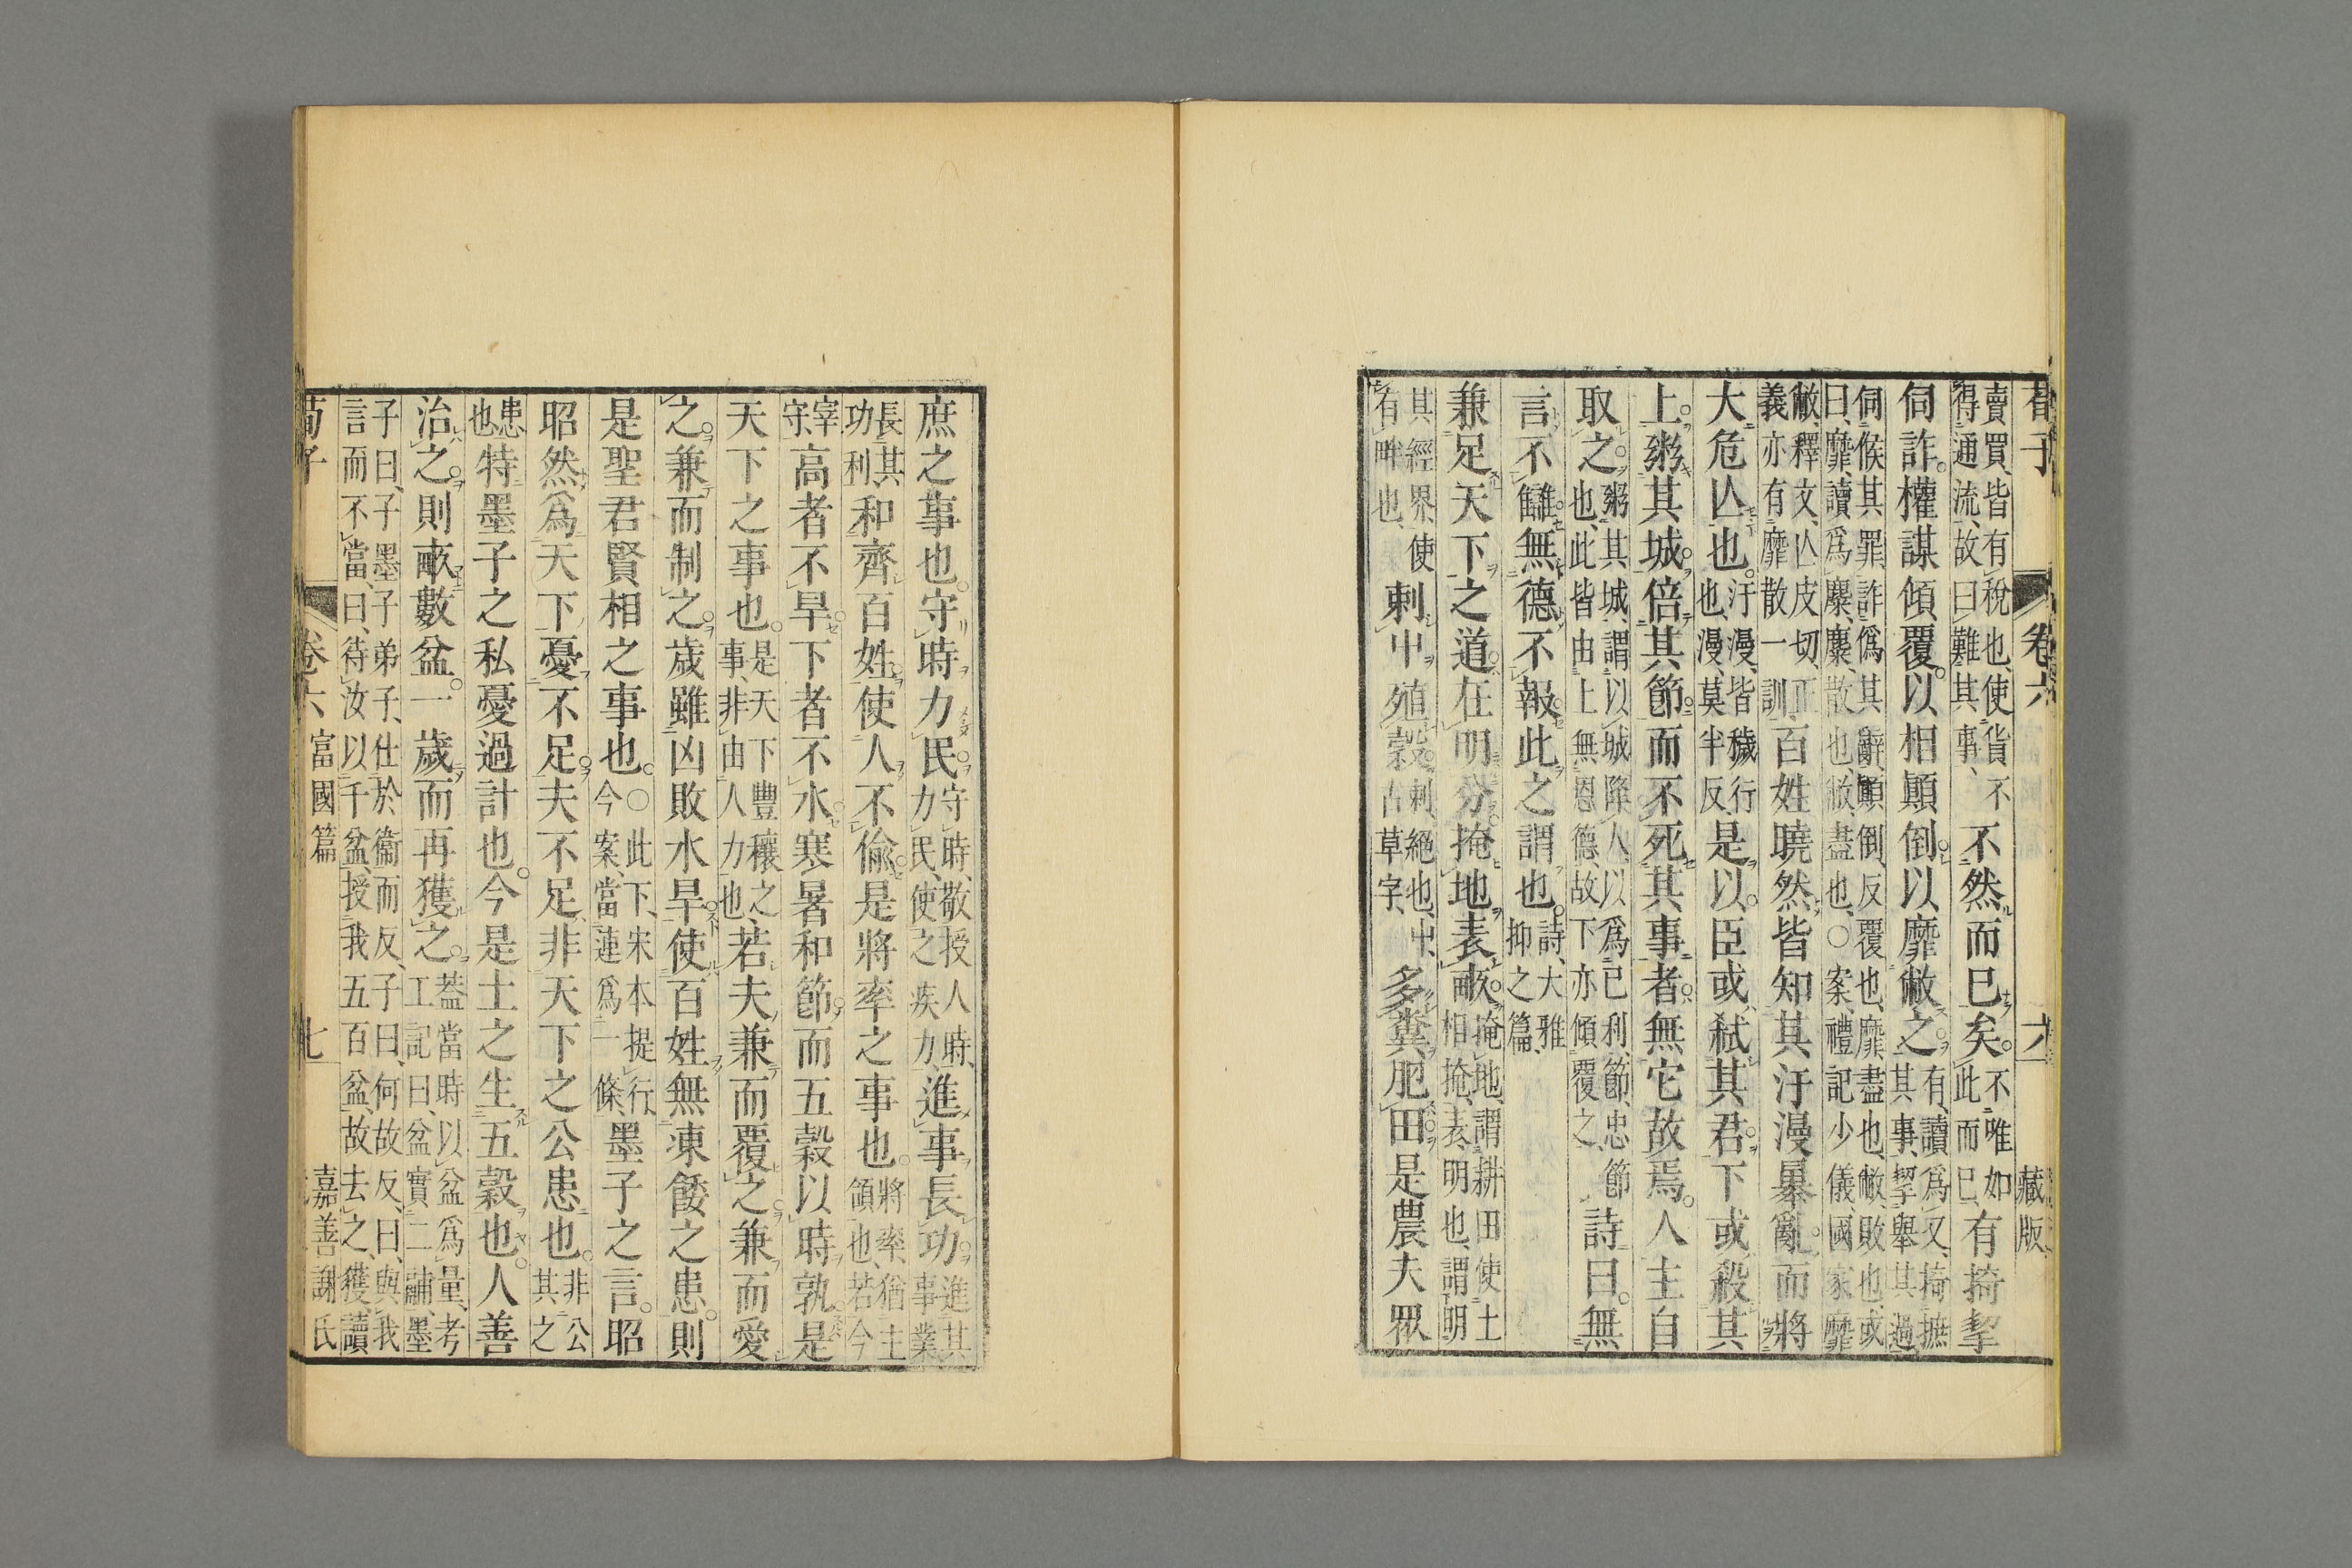 荀子 卷六 六 藏版
賣買、皆有税也、使貨不得通流、故曰難其事、不然而已矣。不唯如此而已、有掎挈
伺詐。權謀傾覆。以相顚倒。以靡敝之。有、讀爲又、掎摭其事、挈舉其過、
伺候其罪、詐僞其辭、顚倒反覆也、靡盡也、敝、敗也、或曰、靡讀爲麋、麋、散也、敝、盡也、○案、禮記少儀、國家靡
敝、釋文、亾皮切、正義亦有靡散一訓、百姓曉然皆知其汙漫暴亂。而將
大危亾也。汙漫、皆穢行也、漫、莫半反、是以臣或弑其君。下或殺其
上。粥其城。倍其節。而不死其事者。無它故焉。人主自
取之。粥其城、謂以城降人、以爲己利、節、忠節也、此皆由上無恩德、故下亦傾覆之、詩曰。無
言不讎。無德不報。此之謂也。詩、大雅抑之篇、
兼足天下之道。在明分。掩地表畝。掩地、謂耕田使土相掩、表、明也、謂明
其經界、使有畔也、刺屮殖穀。刺、絕也、屮、古草字、多糞肥田。是農夫眾
庶之事也。守時力民。守時、敬授人時、力民、使之疾力、進事長功。進其事業
長其功利、和齊百姓。使人不偷。是將率之事也。將率、猶主領也、若今
宰守、高者不旱。下者不水。寒暑和節。而五穀以時孰。是
天下之事也。是天下豐穰之事、非由人力也、若夫兼而覆之。兼而愛
之。兼而制之。歲雖凶敗水旱。使百姓無凍餧之患。則
是聖君賢相之事也。○此下、宋本提行、今案、當連爲一條、墨子之言。昭
昭然爲天下憂不足。夫不足、非天下之公患也。非公其之
患也特墨子之私憂過計也。今是土之生五穀也。人善
治之。則畝數盆。一歲而再獲之。蓋當時以盆爲量、考工記曰、盆實二鬴、墨
子曰、子墨子弟子、仕於衞而反、子曰、何故反、曰、與我言而不當、曰、待汝以千盆、授我五百盆、故去之、獲、讀
荀子 卷六 富國篇 七 嘉善謝氏